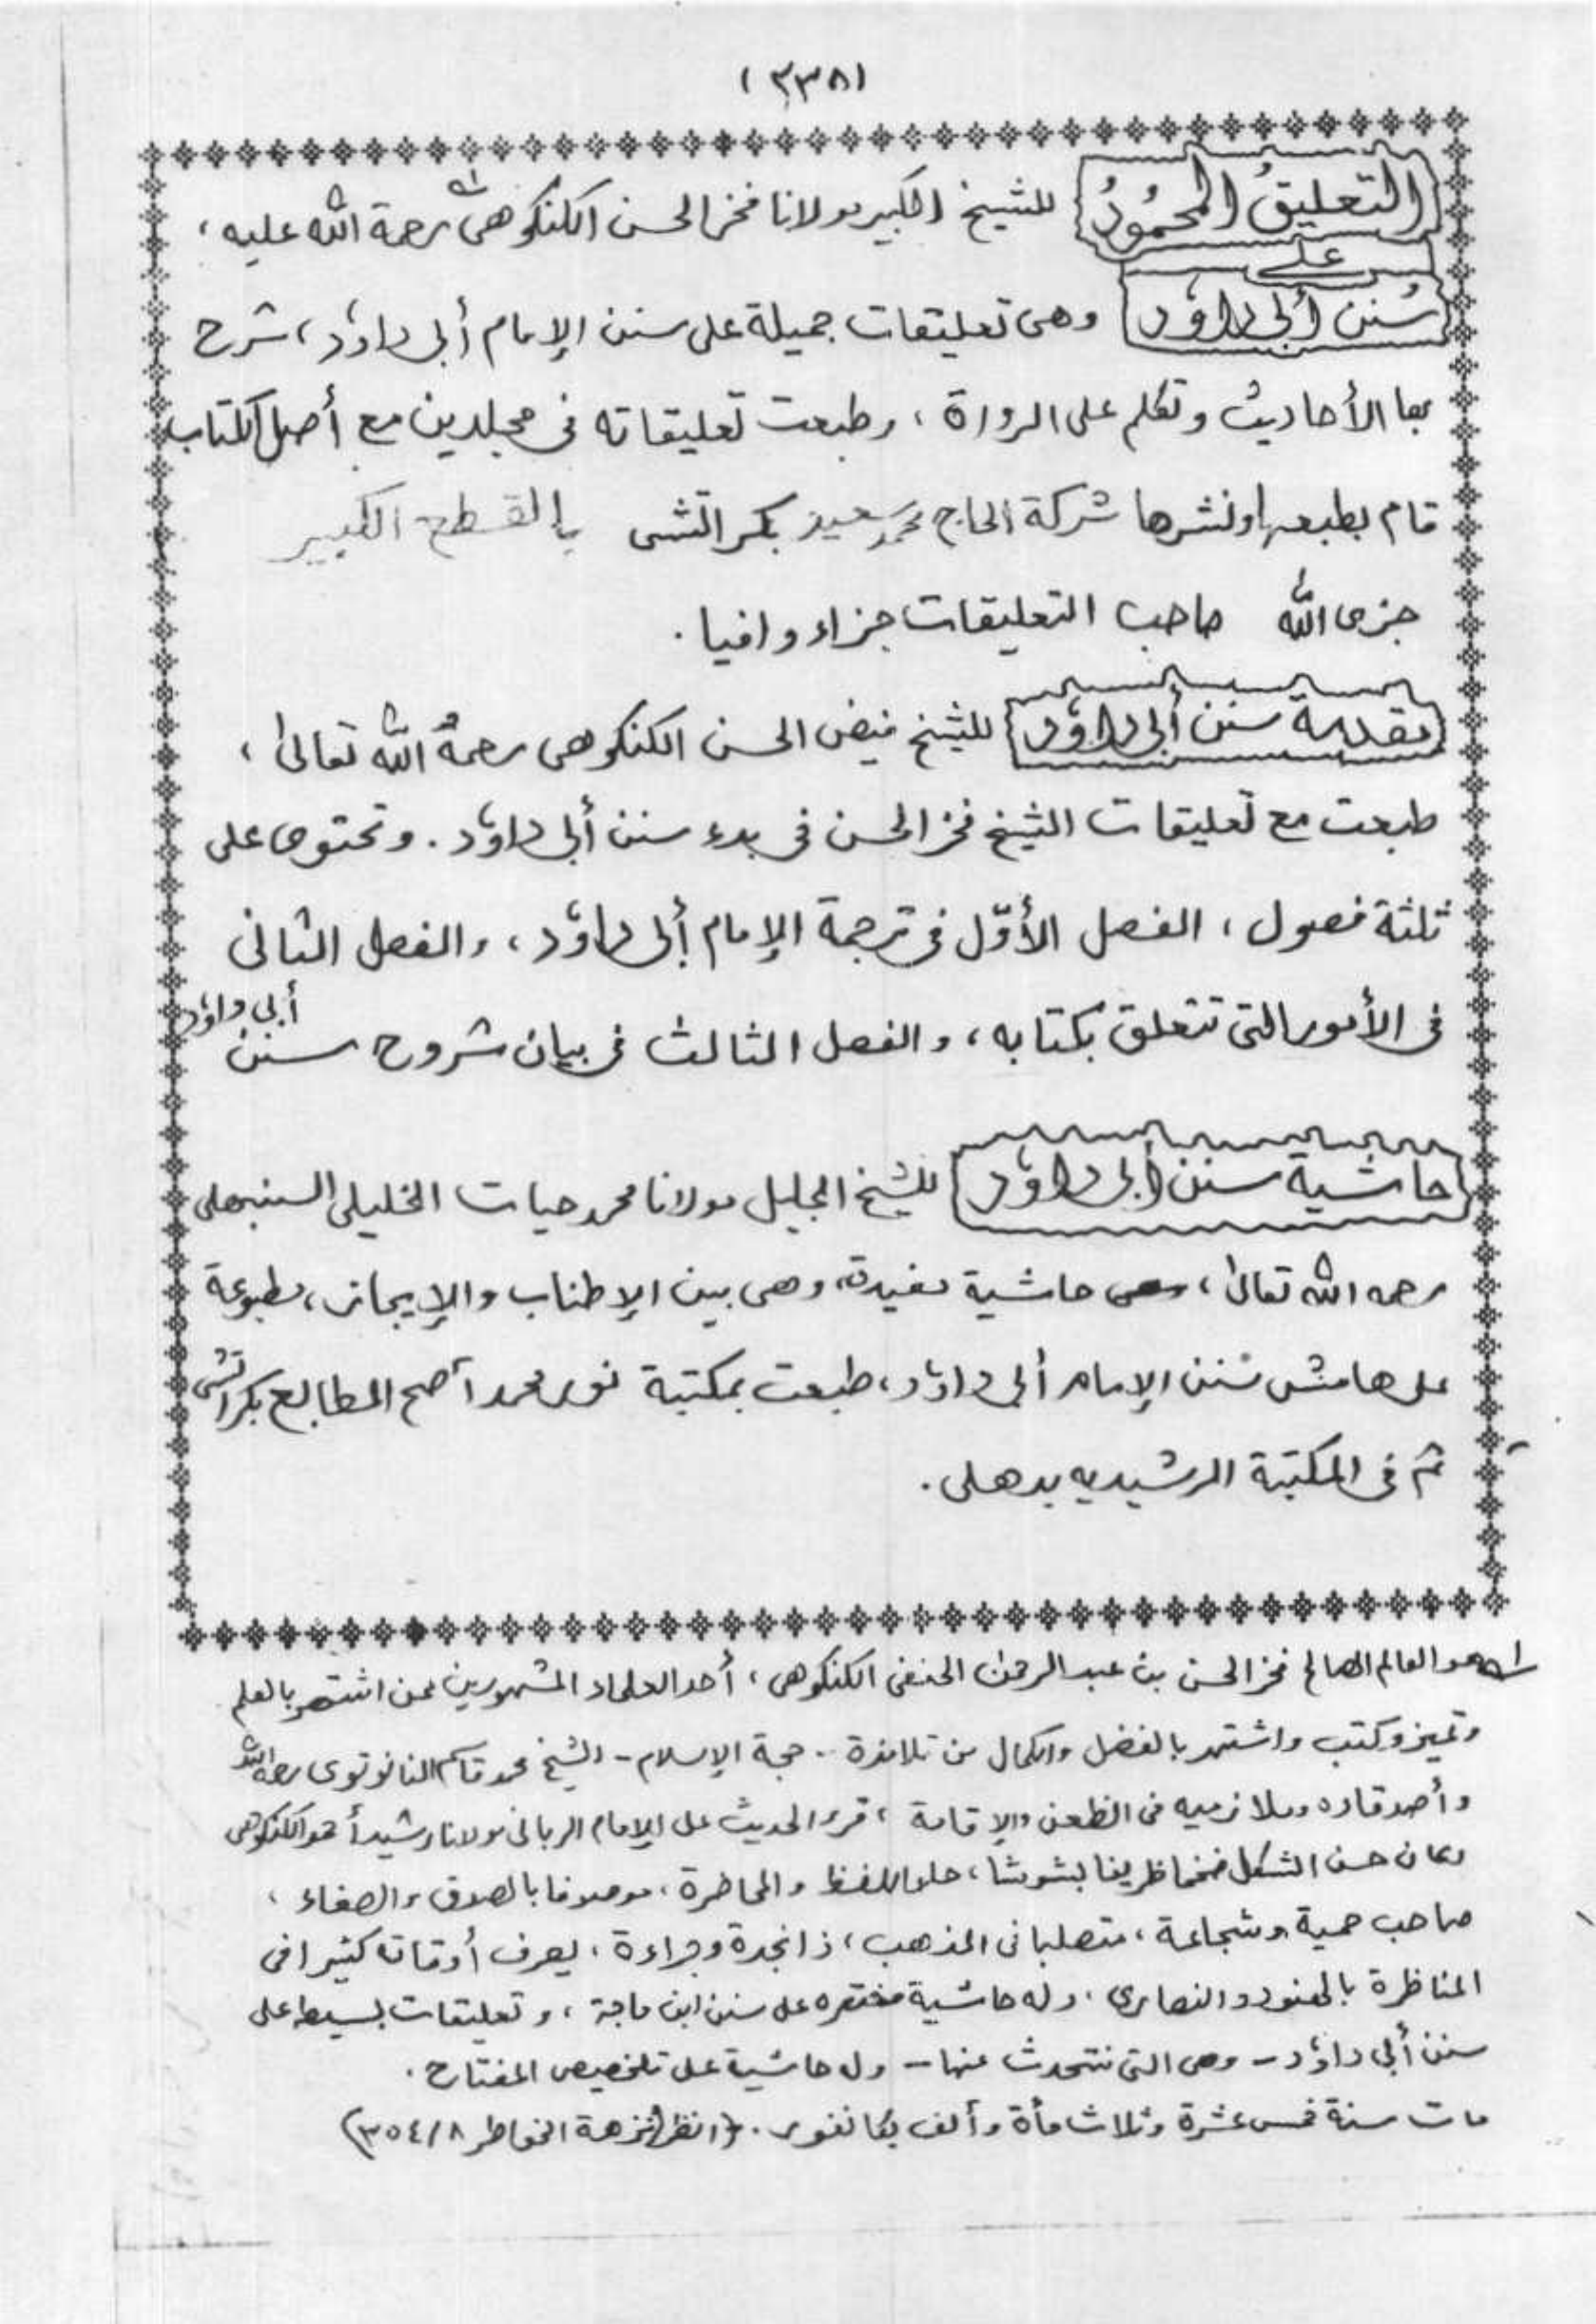 (٣٣٨)
التعليقُ المحمُودُ للشيخ الكبير مولانا فخر الحسن الكنكوهى رحمة الله عليه ،
على
سُنن أبى داؤد وهى تعليقات جميلة على سنن الإمام أبى داؤد ، شرح
بها الأحاديث وتكلم على الرواة ، وطبعت تعليقاته فى مجلدين مع أصل الكتاب
قام بطبعها ونشرها شركة الحاج محمد سعيد بكراتشى بالقطع الكبير
جزى الله صاحب التعليقات جزاء وافيا .
مقدمة سنن أبى داؤد للشيخ فيض الحسن الكنكوهى رحمهُ الله تعالىٰ ،
طبعت مع تعليقات الشيخ فخر الحسن فى بدء سنن أبى داؤد . وتحتوى على
ثلثة فصول ، الفصل الأوّل فى ترجمة الإمام أبى داؤد ، والفصل الثانى
فى الأمور التى تتعلق بكتابه ، والفصل الثالث فى بيان شروح سنن أبى داؤد
حاشية سنن أبى داؤد للشيخ الجليل مولانا محمد حيات الخليلى السنبهلى
رحمه الله تعالىٰ ، وهى حاشية مفيدة، وهى بين الإطناب والإيجاز ، مطبوعة
على هامش سُنن الإمام أبى داؤد ، طبعت بمكتبة نور محمد أصح المطابع بكراتشى
ثم فى المكتبة الرشيديه بدهلى .
له هو العالم الصالح فخر الحسن بن عبد الرحمٰن الحنفى الكنكوهى ، أحد العلماء المشهورين ممن اشتهر بالعلم
وتميز وكتب واشتهر بالفضل والكمال من تلامذة - حجة الإسلام - الشيخ محمد قاسم النانوتوى رحمه الله
وأصدقاده وملازميه فى الظعن والإقامة ، قرء الحديث على الإمام الربانى مولانا رشيد أحمد الكنكوهى
وكان حسن الشكل ضخما ظريفا بشوشا ، حلو اللفظ والمحاضرة ، موصوفا بالصدق والصفاء ،
صاحب حمية وشجاعة ، متصلبا فى المذهب ، ذا نجدة وجراءة ، يصرف أوقاته كثيرا فى
المناظرة بالهنود والنصارى ، وله حاشية مختصره على سنن ابن ماجة ، وتعليقات بسيطه على
سنن أبى داؤد - وهى التى نتحدث عنها - وله حاشية على تلخيص المفتاح .
مات سنة خمس عشرة وثلاث مأة وألف بكانفور . (انظر نزهة الخواطر ٨/٣٥٤)